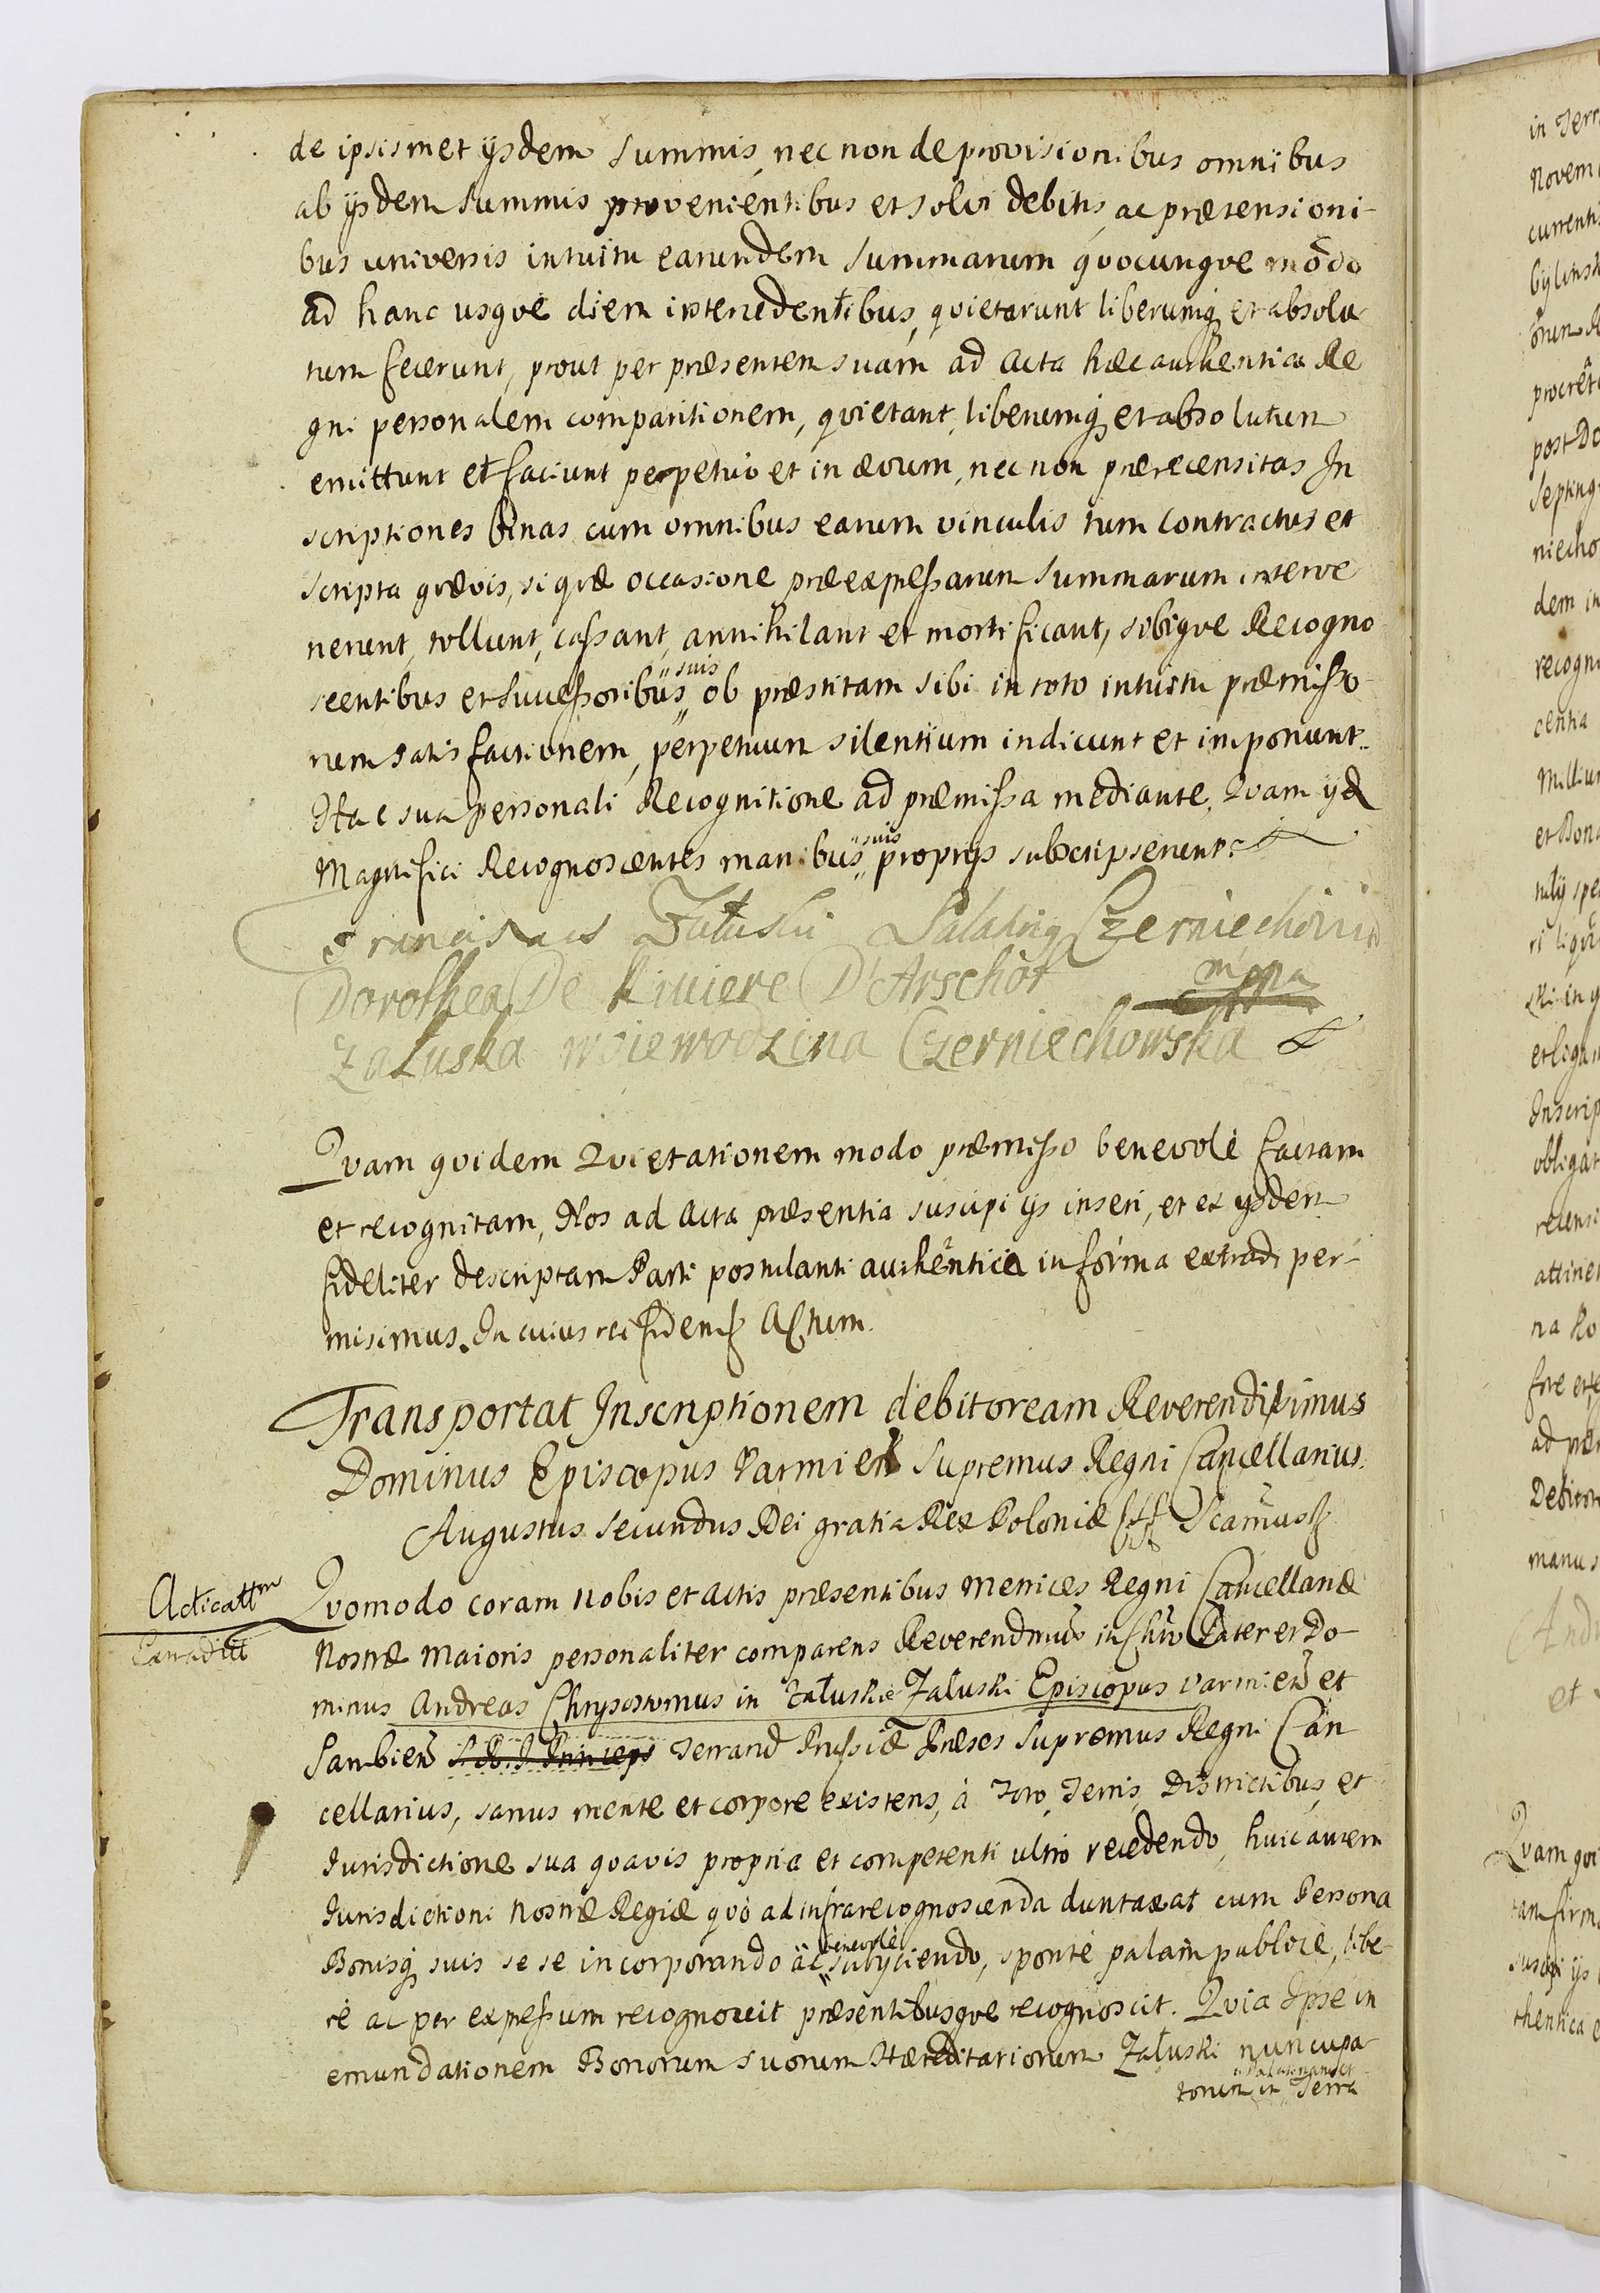 de ipsismet ijsdem summis, nec non de provisionibus omnibus
ab ijsdem summis provenientibus et solvi debitis, ac prætensioni-
bus universis intuitu earundem summarum qvocunqve modo
ad hanc usqve diem intercedentibus, qvietarunt liberumq et absolu-
tum fecerunt, prout per præsentem suam ad Acta hæc authentica Re
gni personalem comparitionem, qvietant, liberumq et absolutum
emittunt et faciunt perpetuò et in ævum, nec non prærecensitas In
scriptiones binas cum omnibus earum vinculis tum contractus et
scripta qvævis, si qvæ occasione præexpressarum summarum interve
nerunt, tollunt, cassant, annihilant et mortificant, sibiqve Recogno
scentibus et successoribus suis ob præstitam sibi in toto intuitu præmisso
rum satisfactionem, perpetuum silentium indicunt et imponunt.
Hac sua personali Recognitione ad præmissa mediante, Qvam ijd
Magnifici Recognoscentes manibus suis proprijs subscripserunt.
Franciscus Załuski Palatinq Czerniechovien
Dorothea De Riviere D'Arschot mppa
Załuska woiewodzina Czerniechowska
Qvam qvidem Qvietationem modo præmisso benevolè factam
et recognitam, Nos ad Acta præsentia suscipi ijs inseri, et ex ijsdem
fideliter descriptam Parti postulanti authentica in forma extradi per-
misimus. In cuius rei fidem Actum.
Transportat Inscriptionem debitoream Reverendissimus
Dominus Episcopus Varmien Supremus Regni Cancellarius.
Augustus Secundus Dei gratia Rex Poloniæ
Acticattm
Qvomodo coram Nobis et Actis præsentibus Metrices Regni Cancellariæ
Nostræ Maioris personaliter comparens Reverendmus in Chro Pater et Do-
minus Andreas Chrysostomus in Załuskie Załuski Episcopus Varmien et
Sambien S. R. I. Princeps Terrarū Prussiæ Præses Supremus Regni Can
cellarius, sanus mente et corpore existens, à Foro, Terris, Districtibus, et
Iurisdictione sua qvavis propria et competenti ultrò recedendo, huic autem
Iurisdictioni Nostræ Regiæ qvò ad infrarecognoscenda duntaxat cum Persona
Bonisq suis sese incorporando ac benevolè subijciendo, sponte palam publicè, libe-
rè ac per expressum recognovit præsentibusqve recognoscit. Qvia Ipse in
emundationem Bonorum suorum Hæreditariorum Załuski nuncupa
torum in Palatinatu et Terra